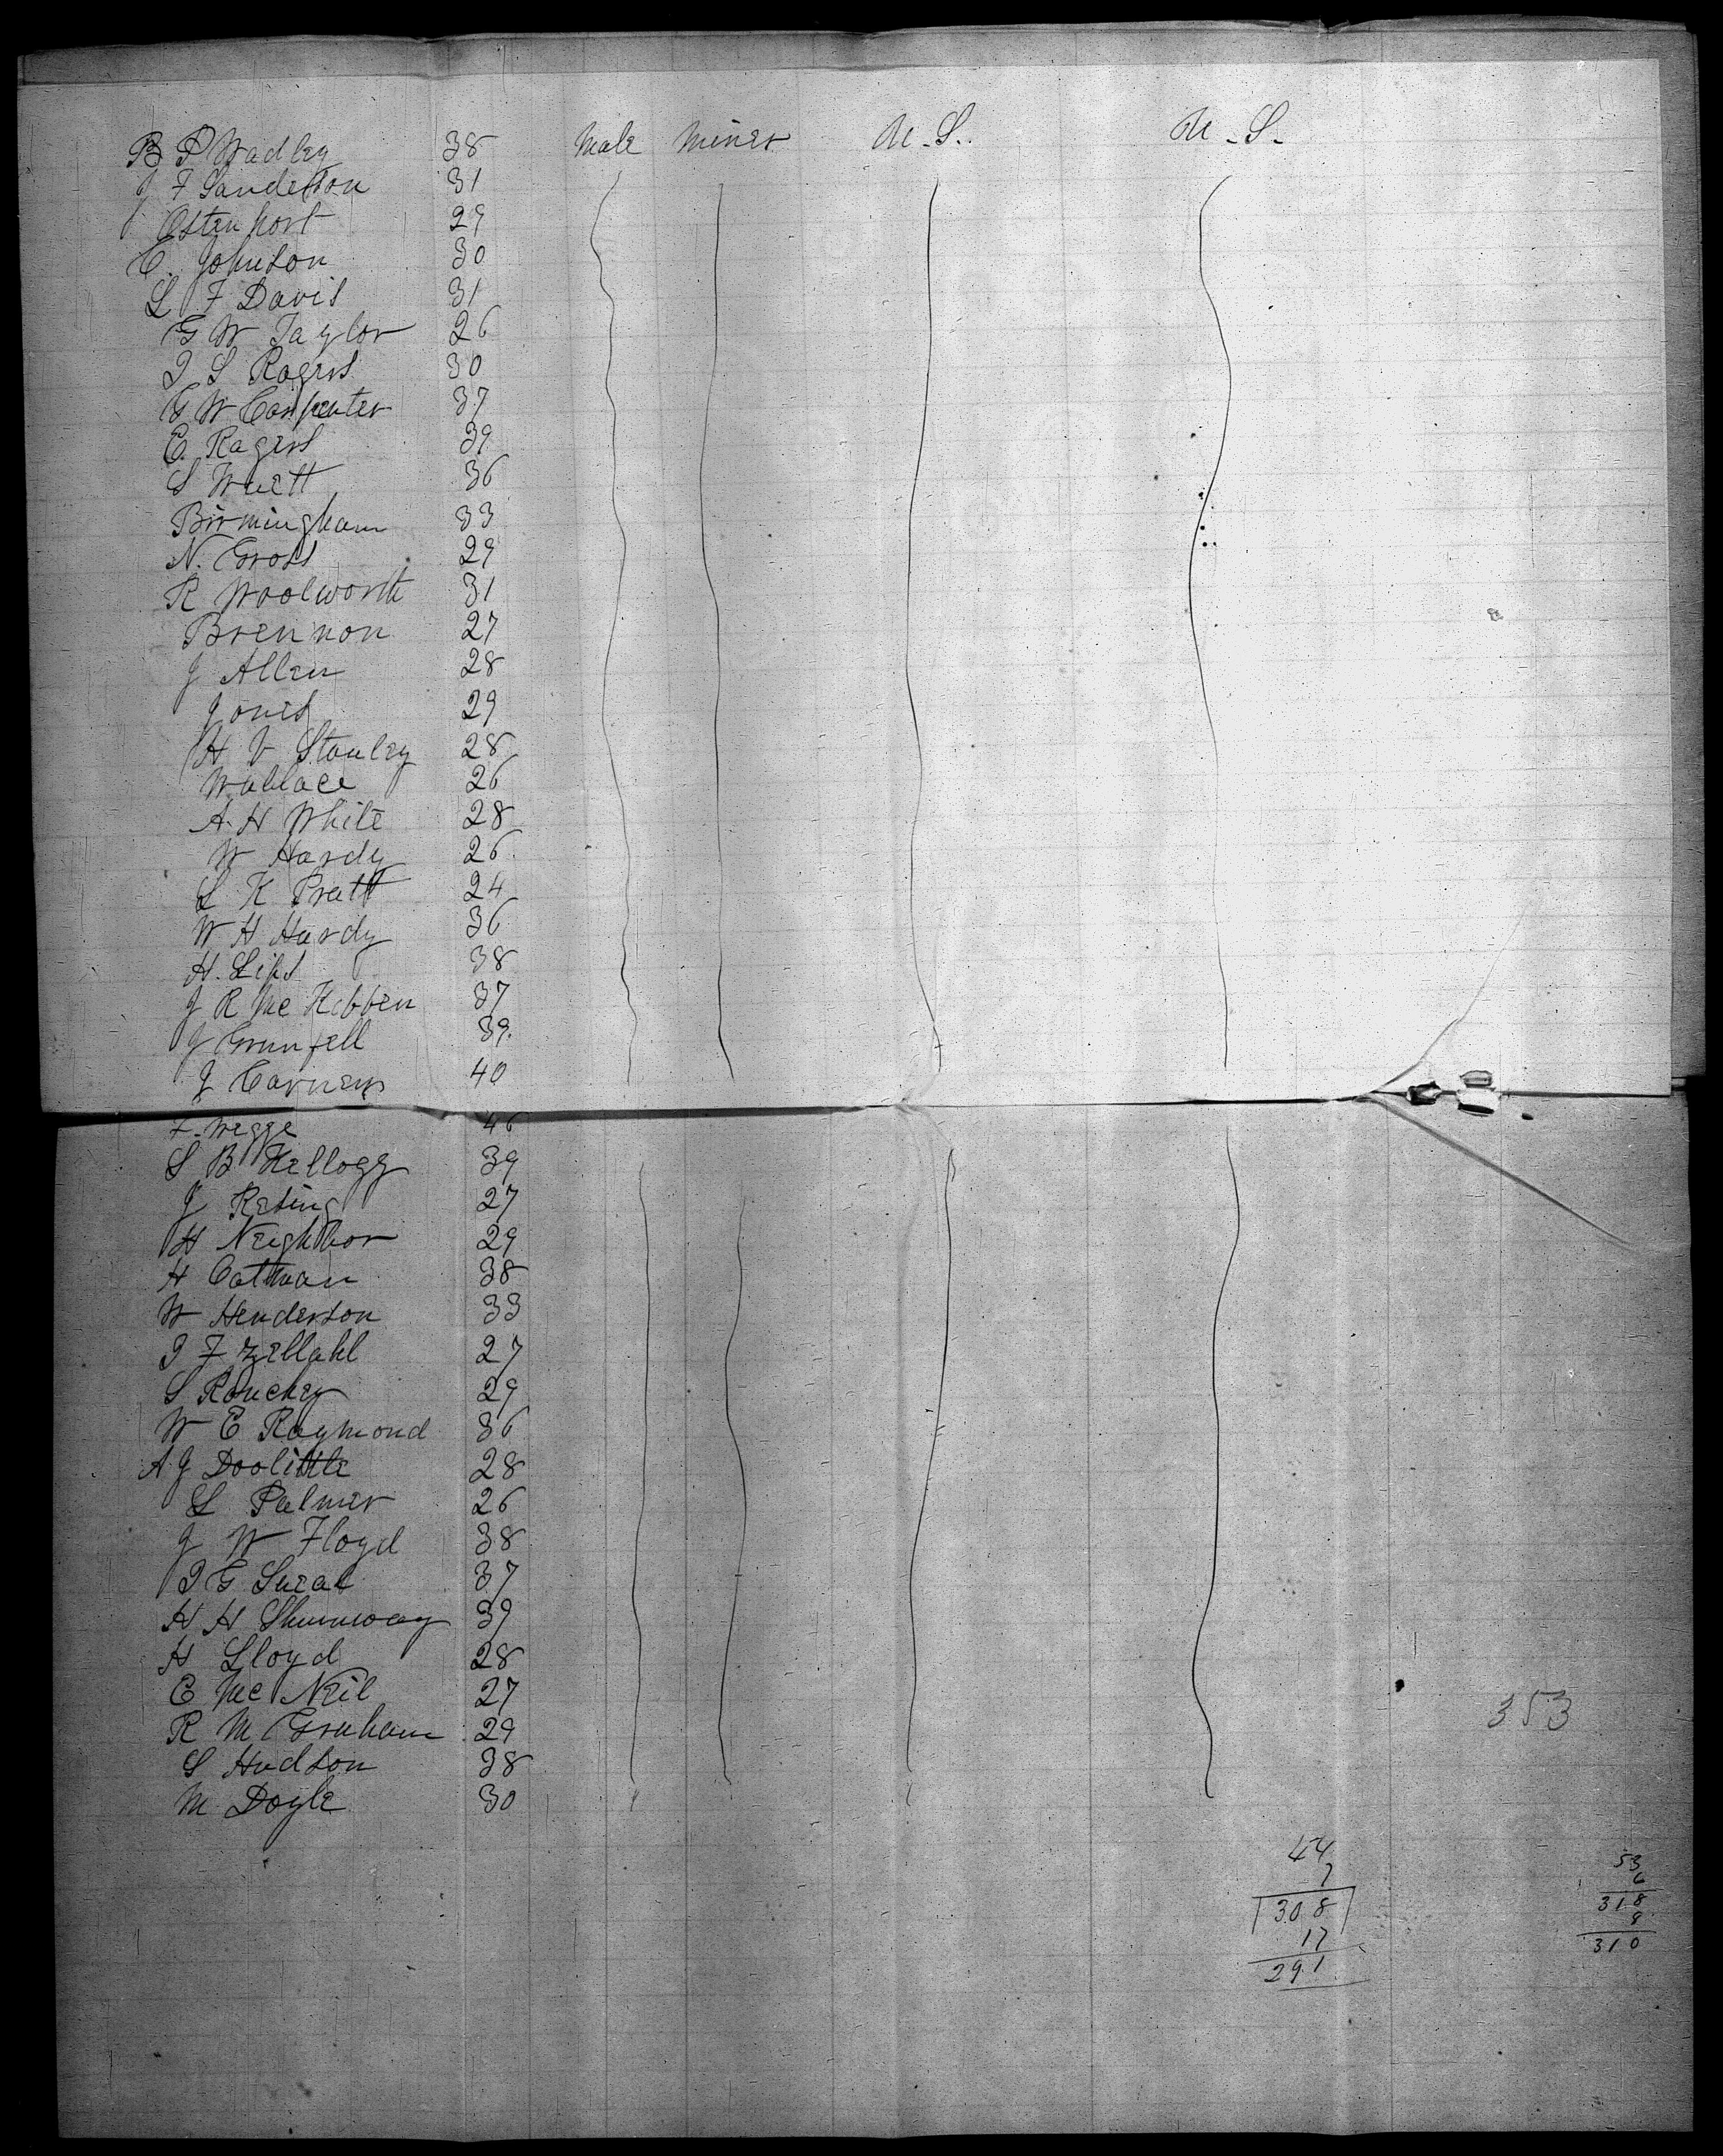 B P Wadley 38 Male Miner U.S. U.S.
J F Sanderson 31
J Ostenhort 29
C. Johnson 30
L F Davis 31
G W Taylor 26
I S Rogers 30
G W Carpenter 37
E. Rogers 39
S 36
Birmingham 33
N. Gross 29
R Woolworth 31
Brennon 27
J Allen 28
Jones 29
H V Stanley 28
Wallace 26
A. H White 28
W Hardy 26
L K Pratt 24
W H Hardy 36
H. Lips 38
J R McKibben 37
J Grunfell 39.
J 40
F. Wegge 46
S B Kellogg 39
J Resing 27
H Neighbor 29
H Oatman 38
W Henderson 33
I F Zellahl 27
S 29
W E Raymond 36
A J Doolittle 28
L Palmer 26
J W Floyd 38
I G 37
H H Shumway 39
H Lloyd 28
E McNeil 27
R M Graham 29
353
S Hudson 38
M Doyle 30
44
7
308
17
291
53
6
318
8
310